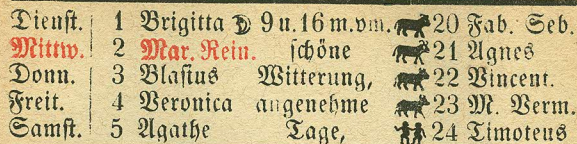 Dienst. 1 Brigitta 9 u. 16 m. vm. 20 Fab. Seb.
Mittw. 2 Mar. Rein. schöne 21 Agnes
Donn. 3 Blasius Witterung, 22 Vincent.
Freit. 4 Veronica angenehme 23 M. Verm.
Samst. 5 Agathe Tage, 24 Timoteus